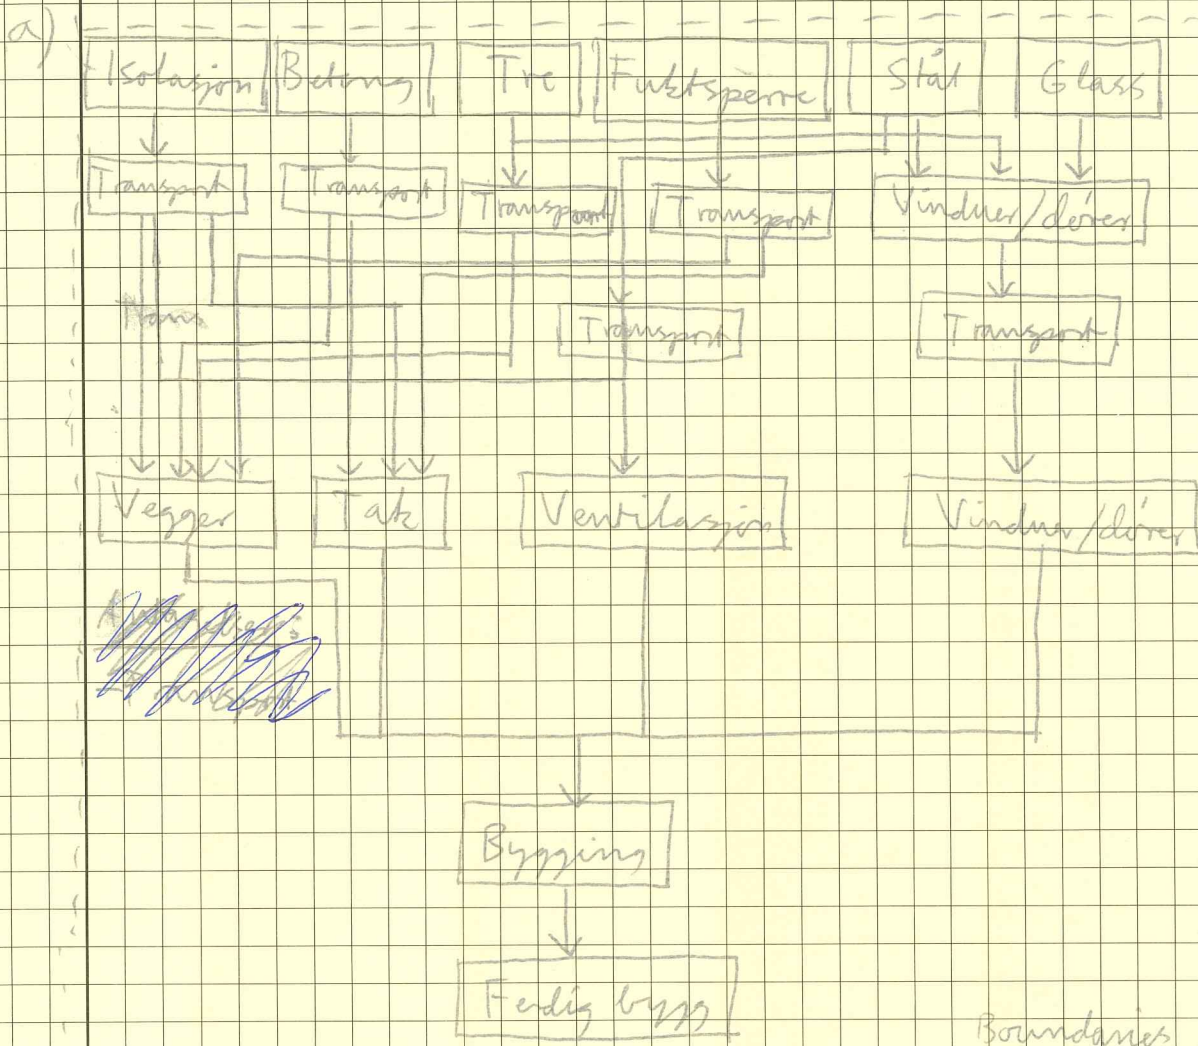 a)
Isolasjon Betong Tre Fuktsperre Stål Glass
Transport Transport Transport Transport Vinduer/dører
Transport Transport
Vegger Tak Ventilasjon Vinduer/dører
Transport
Bygging
Ferdig bygg
Boundaries